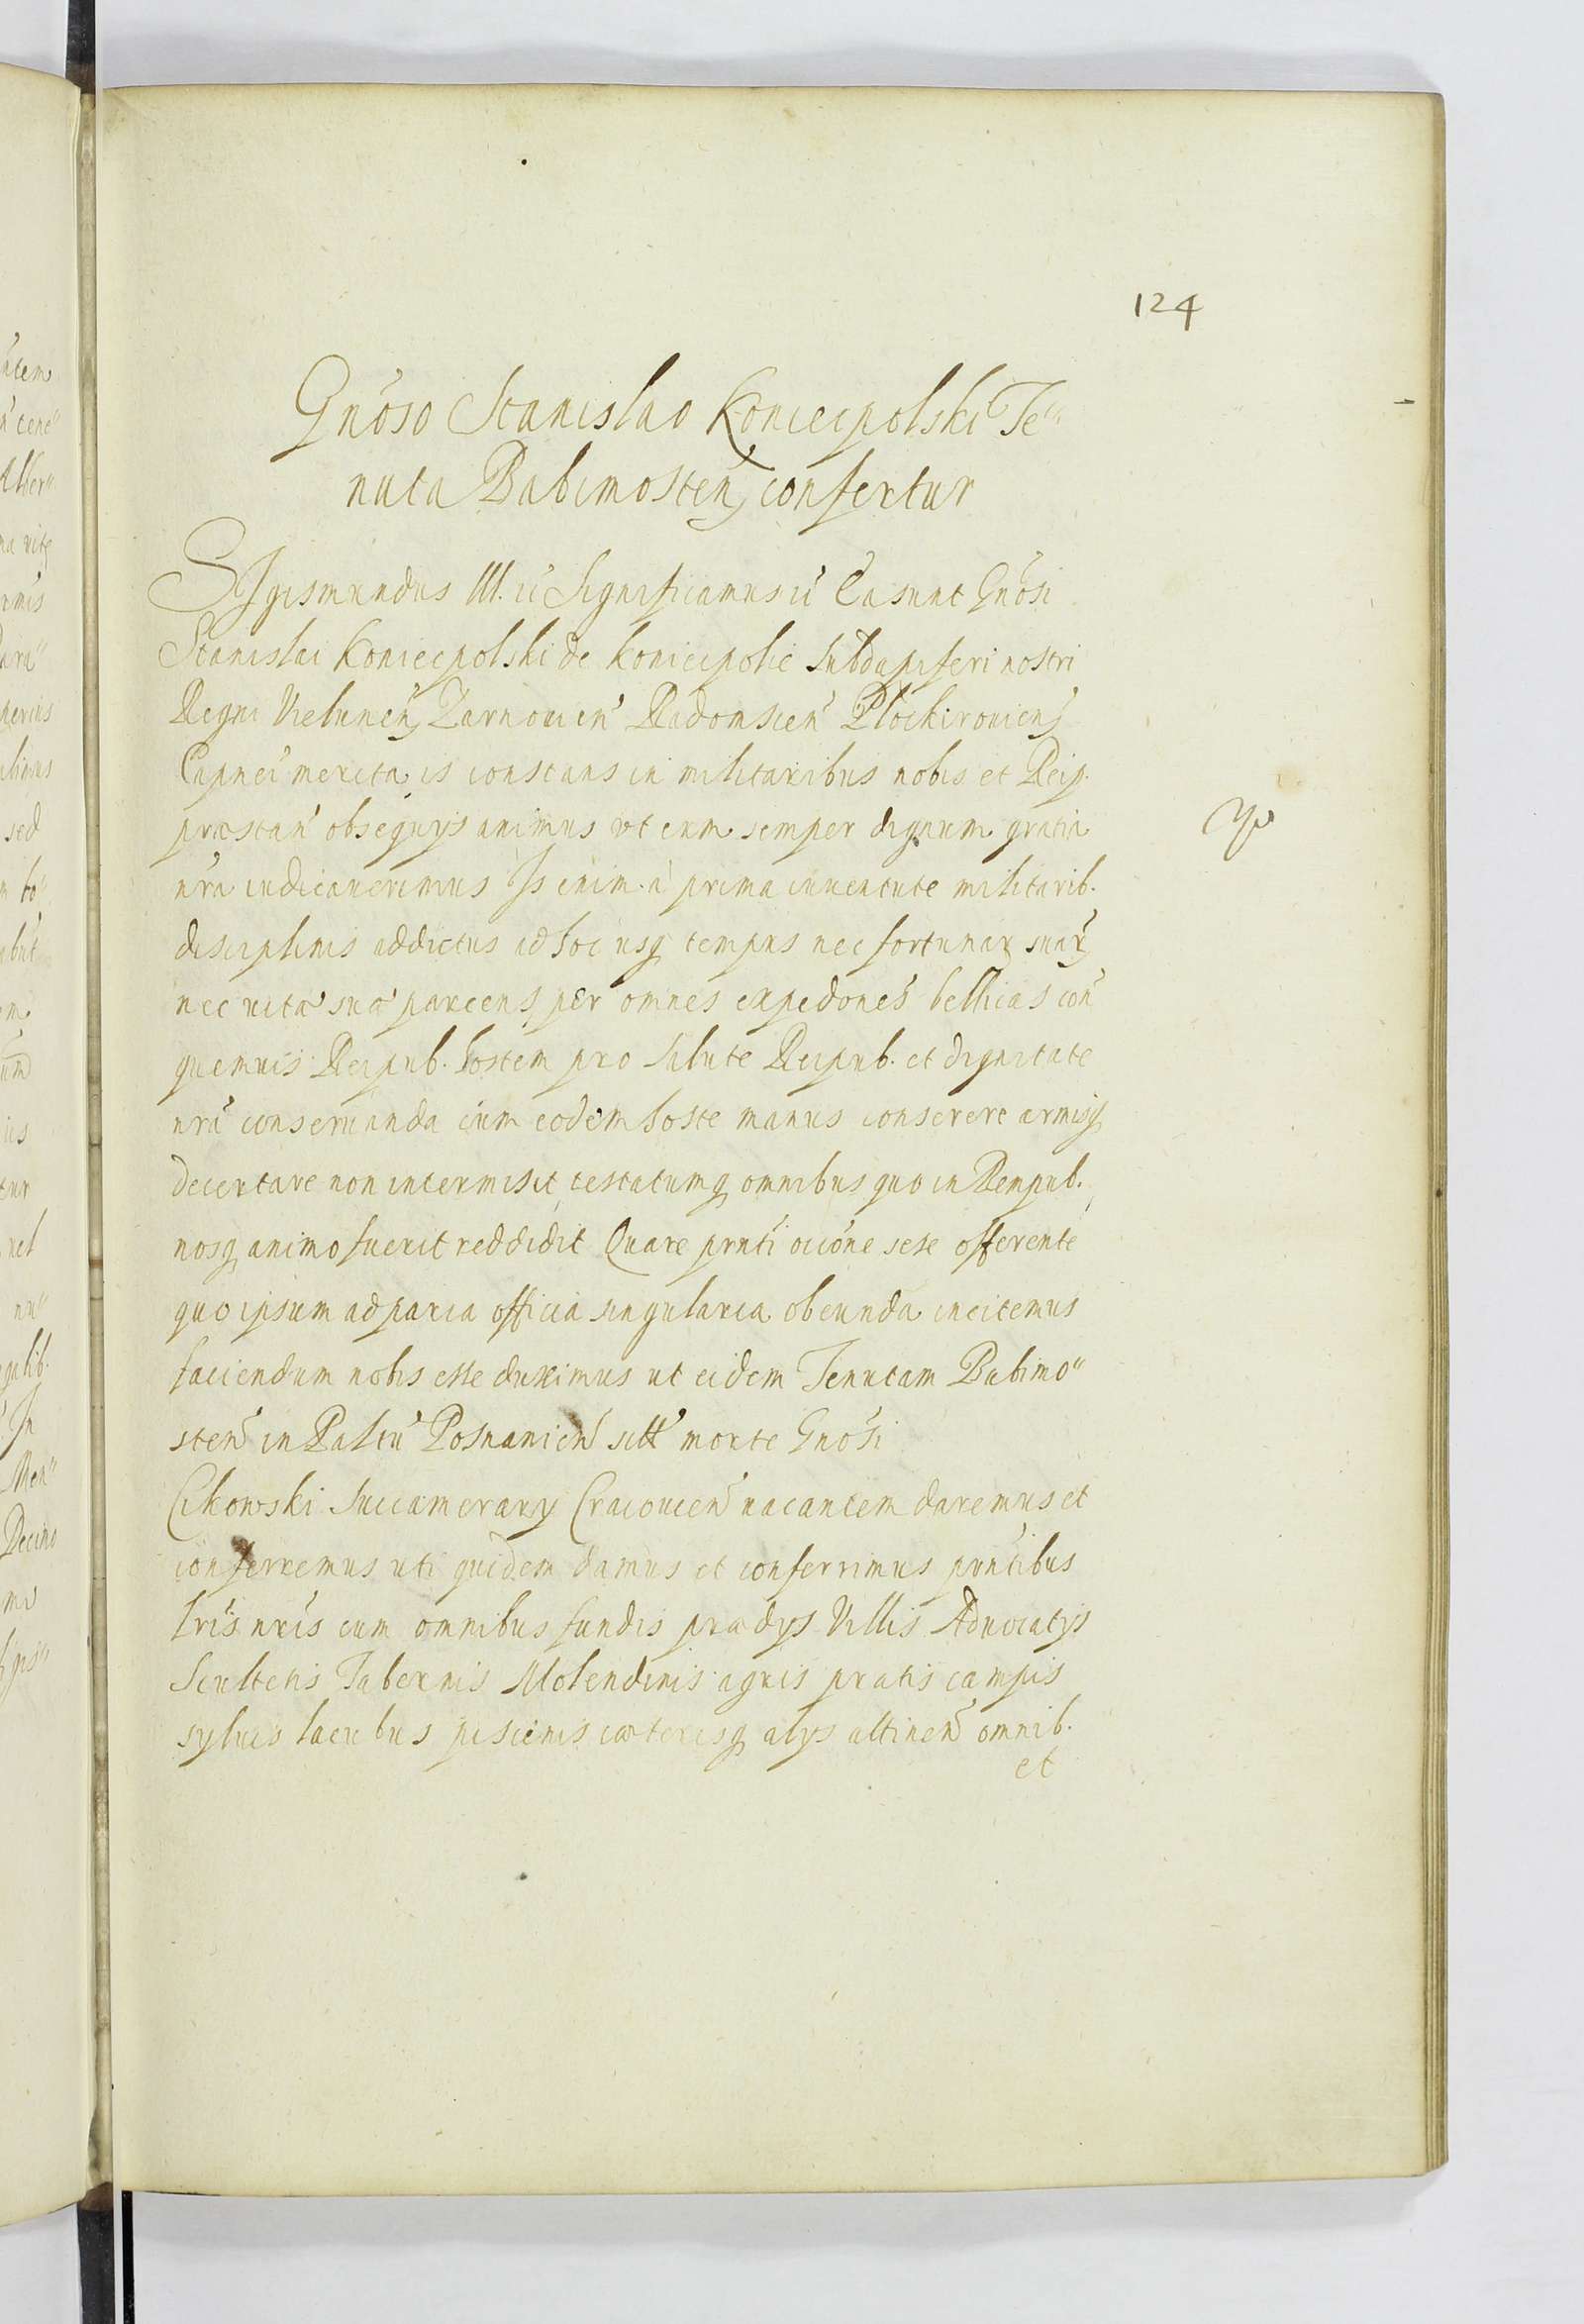 124
Gnoso Stanislao Koniecpolski Te"
nuta Babimosten confertur
SIgismundus III. &c Significamus &c Ea sunt Gnosi
Stanislai Koniecpolski de Koniecpolie Subdapiferi nostri
Regni Vielunen Zarnouien Radomscen Ploskirouien
Capnei merita, is constans in militaribus nobis et Reip.
præstan obsequys animus ut eum semper dignum gratia
nra iudicauerimus Is enim à prima iuuentute militarib.
disciplinis addictus ad hoc usq tempus nec fortunar suar
nec uitæ suæ parcens per omnes expedones bellicas con
quemuis Reipub. hostem pro salute Reipub. et dignitate
nra conseruanda cum eodem hoste manus conserere armisq
decertare non intermisit testatumq omnibus quo in Rempub.
nosq animo fuerit reddidit Quare prnti occone sese offerente
quo ipsum ad paria officia singularia obeunda incitemus
faciendum nobis esse duximus ut eidem Tenutam Babimo"
sten in Paltu Posnanien morte Gnosi
Cikowski Succamerary Cracouien uacantem daremus et
conferremus uti quidem damus et conferrimus prntibus
lris nris cum omnibus fundis prædys Villis Aduocatys
Scultetis Tabernis Molendinis agris pratis campis
syluis lacubus piscinis cæterisq alys attinen omnib.
et